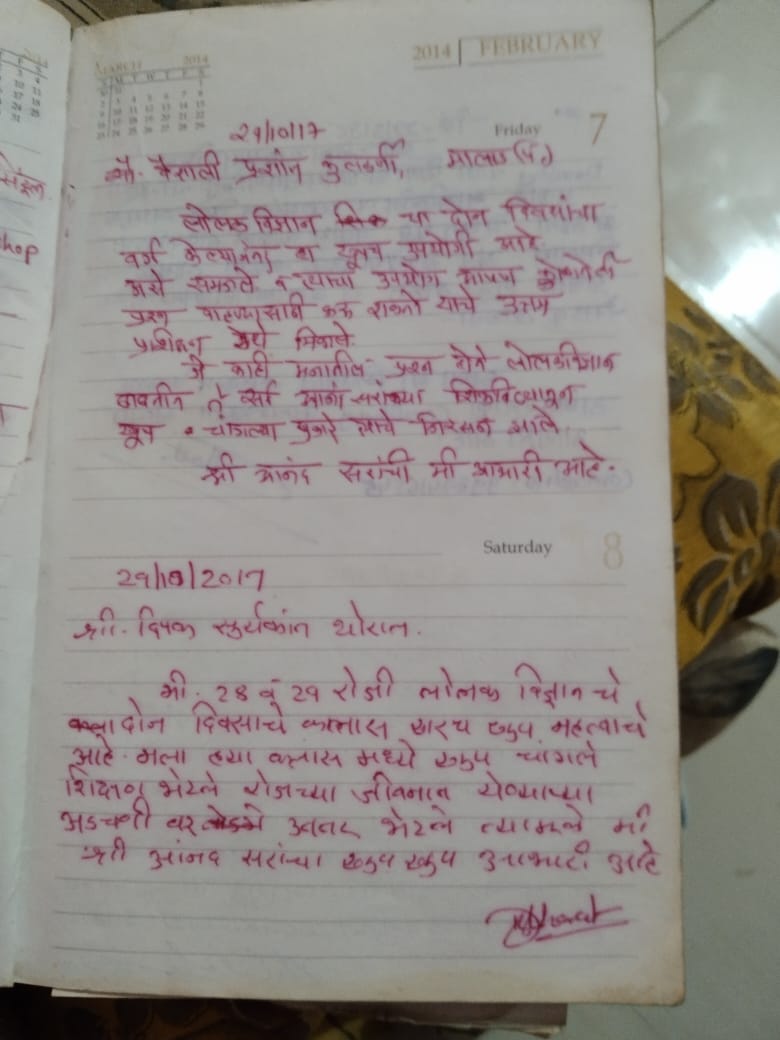 MARCH 2014
2014 | FEBRUARY
Friday 7
29/10/17
सौ. वैशाली प्रशांत कुलकर्णी, मालाड (प.)
लोलक विज्ञान या दोन विषयांचा
वर्ग केल्यानंतर हा खूपच उपयोगी आहे
असे समजले व त्याचा उपयोग आपण कोणतेही
प्रश्न पाहण्यासाठी करू शकतो याचे उत्तम
प्रशिक्षण येथे मिळाले.
जे काही मनातील प्रश्न होते लोलकविज्ञान
बाबतीत ते सर्व आनंद सरांच्या शिकविण्यातून
खूप चांगल्या प्रकारे त्याचे निरसन झाले.
श्री आनंद सरांची मी आभारी आहे.
Saturday 8
29/10/2017
श्री. दिपक सुर्यकांत थोरात.
मी. 28 व 29 रोजी लोलक विज्ञान चे
दोन दिवसाचे क्लास खरच खुप महत्वाचे
आहे. मला ह्या क्लास मध्ये खुप चांगले
शिक्षण भेटले रोजच्या जीवनात येणाऱ्या
अडचणी वर उत्तर भेटले त्यामुळे मी
श्री आंनद सरांचा खुप खुप आभारी आहे